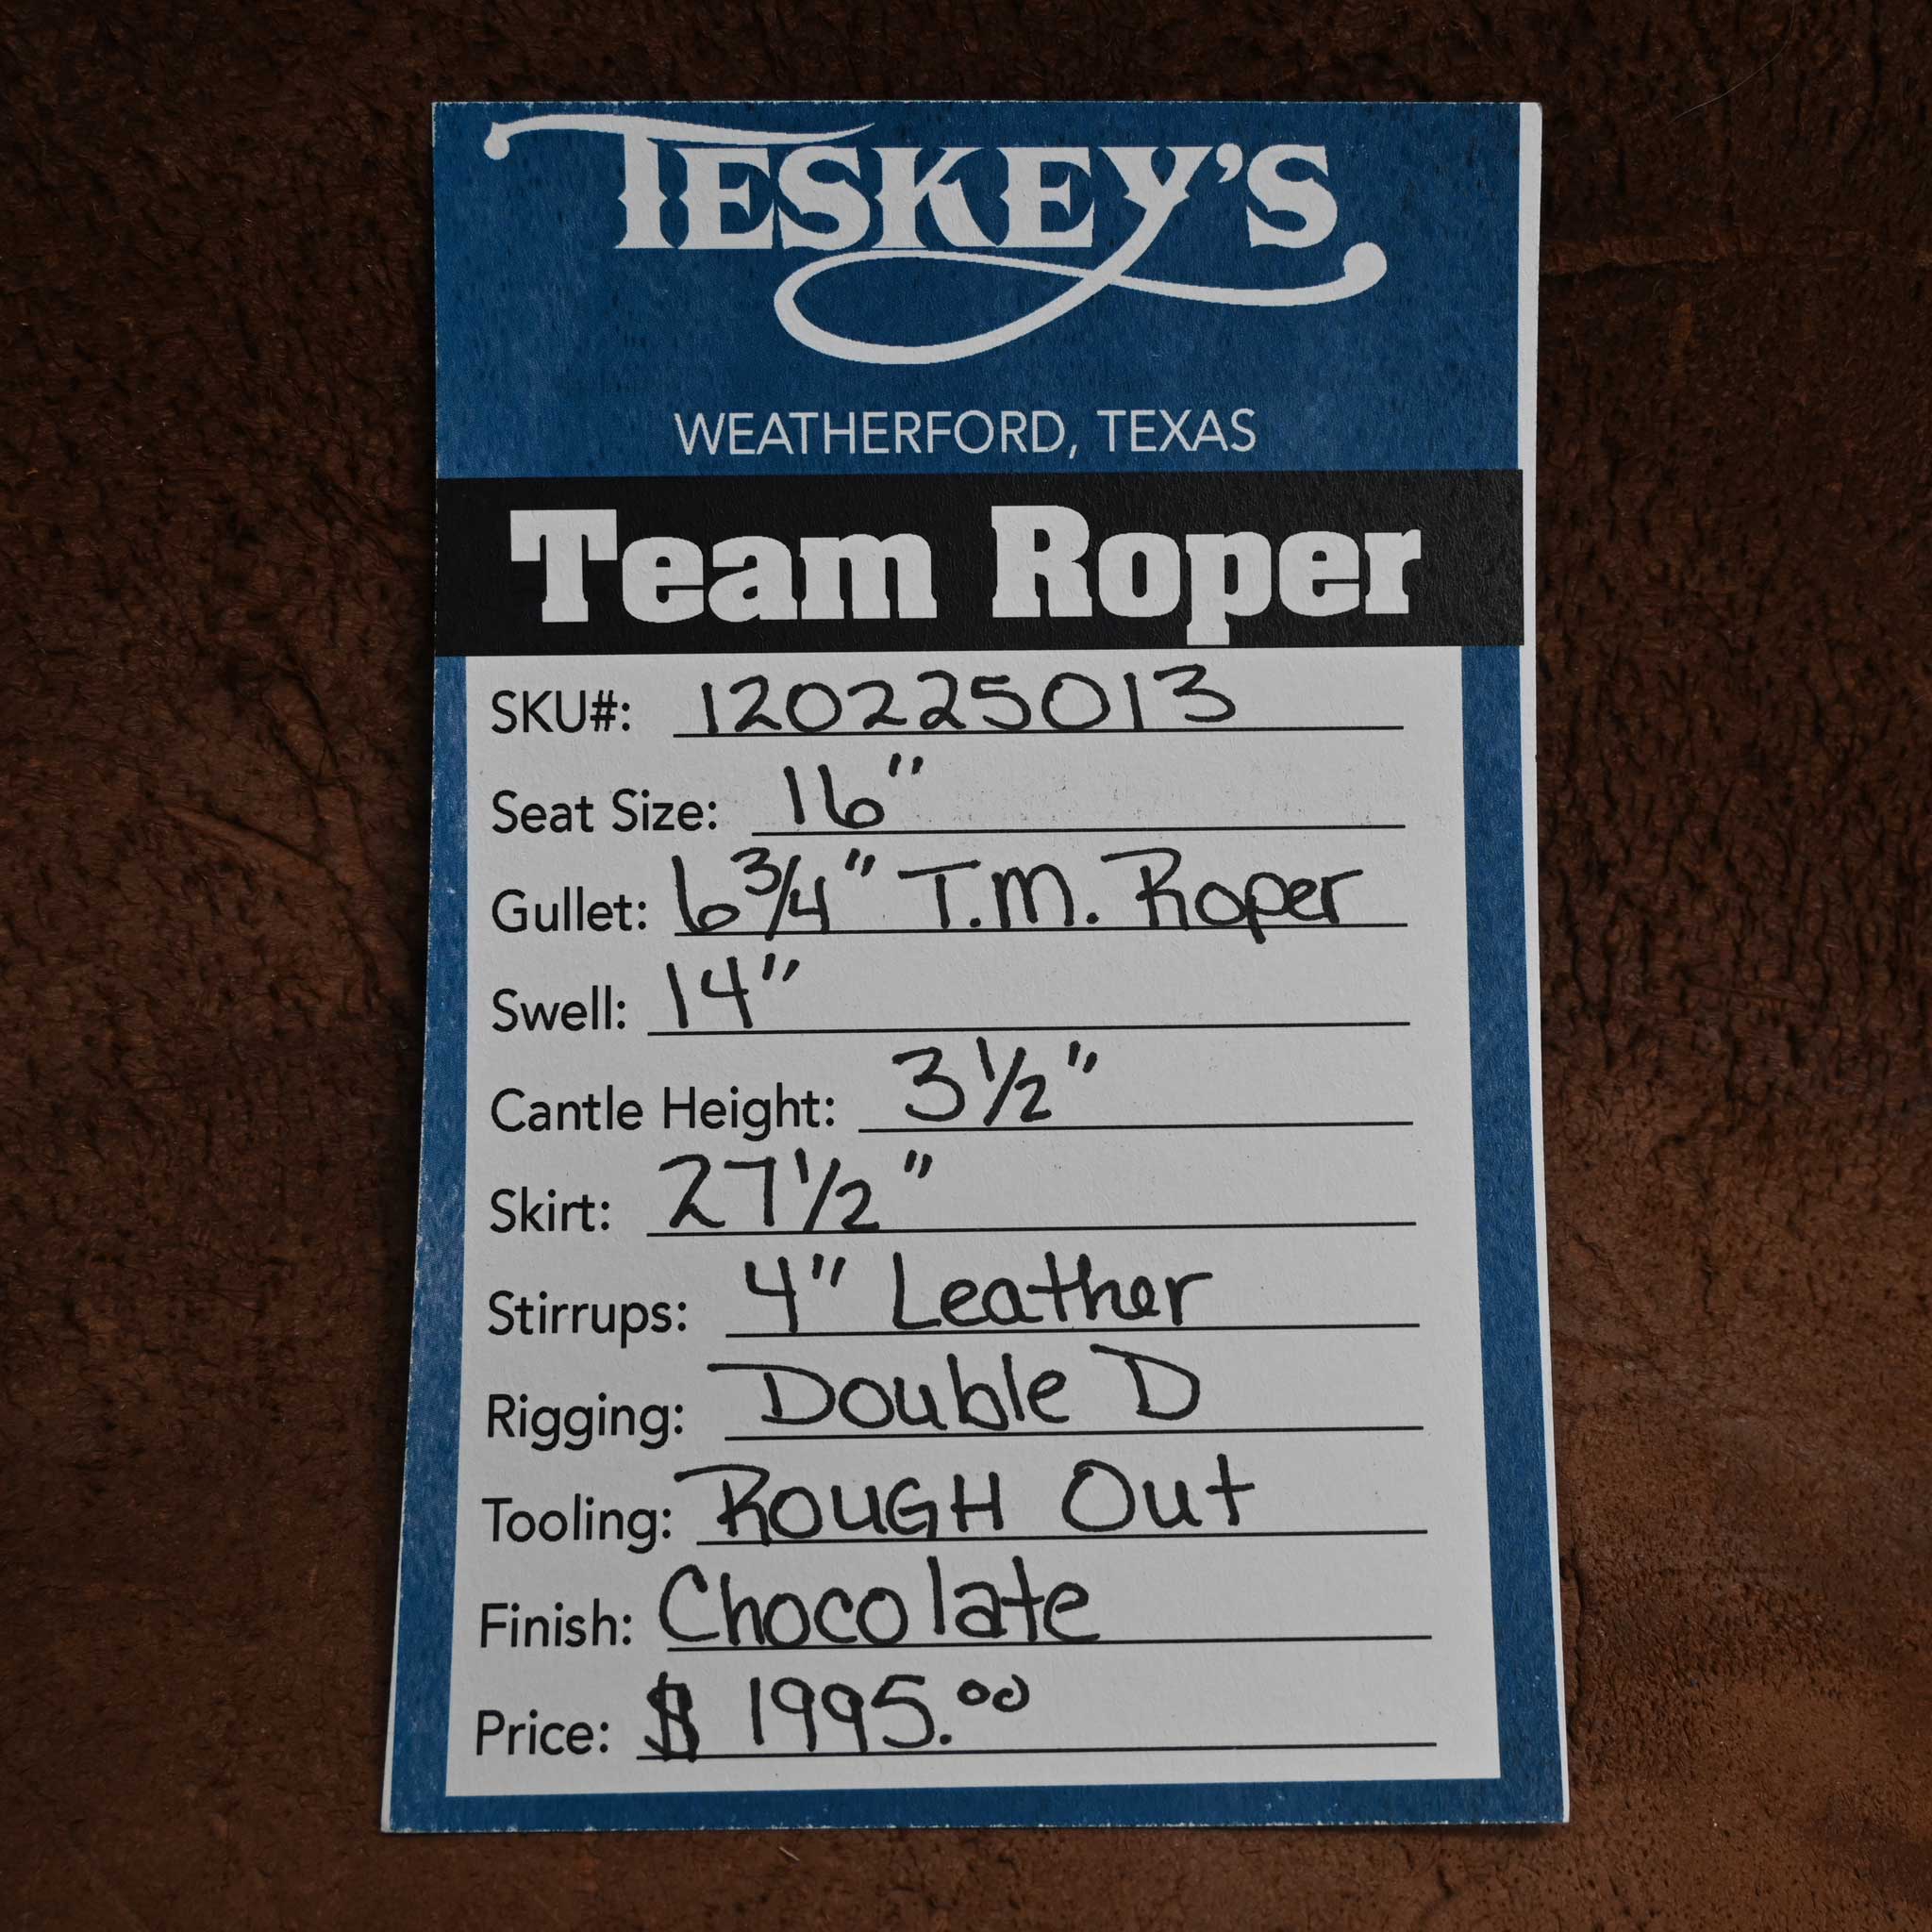 TESKEY'S
WEATHERFORD, TEXAS
Team Roper
SKU#: 120225013
Seat Size: 16"
Gullet: 6 3/4" T.M. Roper
Swell: 14"
Cantle Height: 3 1/2"
Skirt: 27 1/2"
Stirrups: 4" Leather
Rigging: Double D
Tooling: ROUGH Out
Finish: Chocolate
Price: $ 1995.00